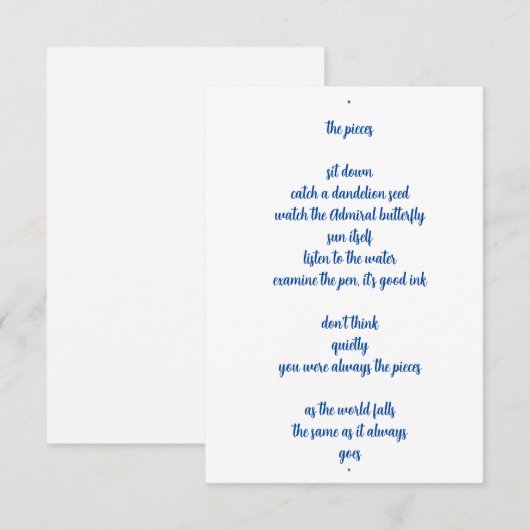 *
the pieces
sit down
catch a dandelion seed
watch the Admiral butterfly
sun itself
listen to the water
examine the pen, it's good ink
don't think
quietly
you were always the pieces
as the world falls
the same as it always
goes
*